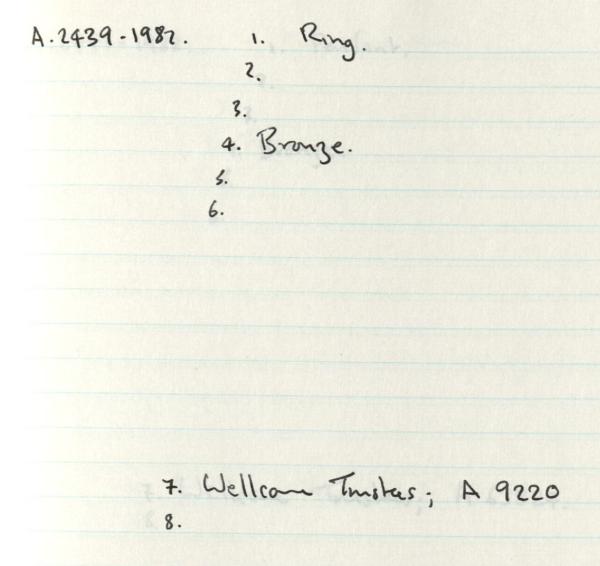 A.2439-1982. 1. Ring.
2.
3.
4. Bronze.
5.
6.
7. Wellcome Trustees; A 9220
8.